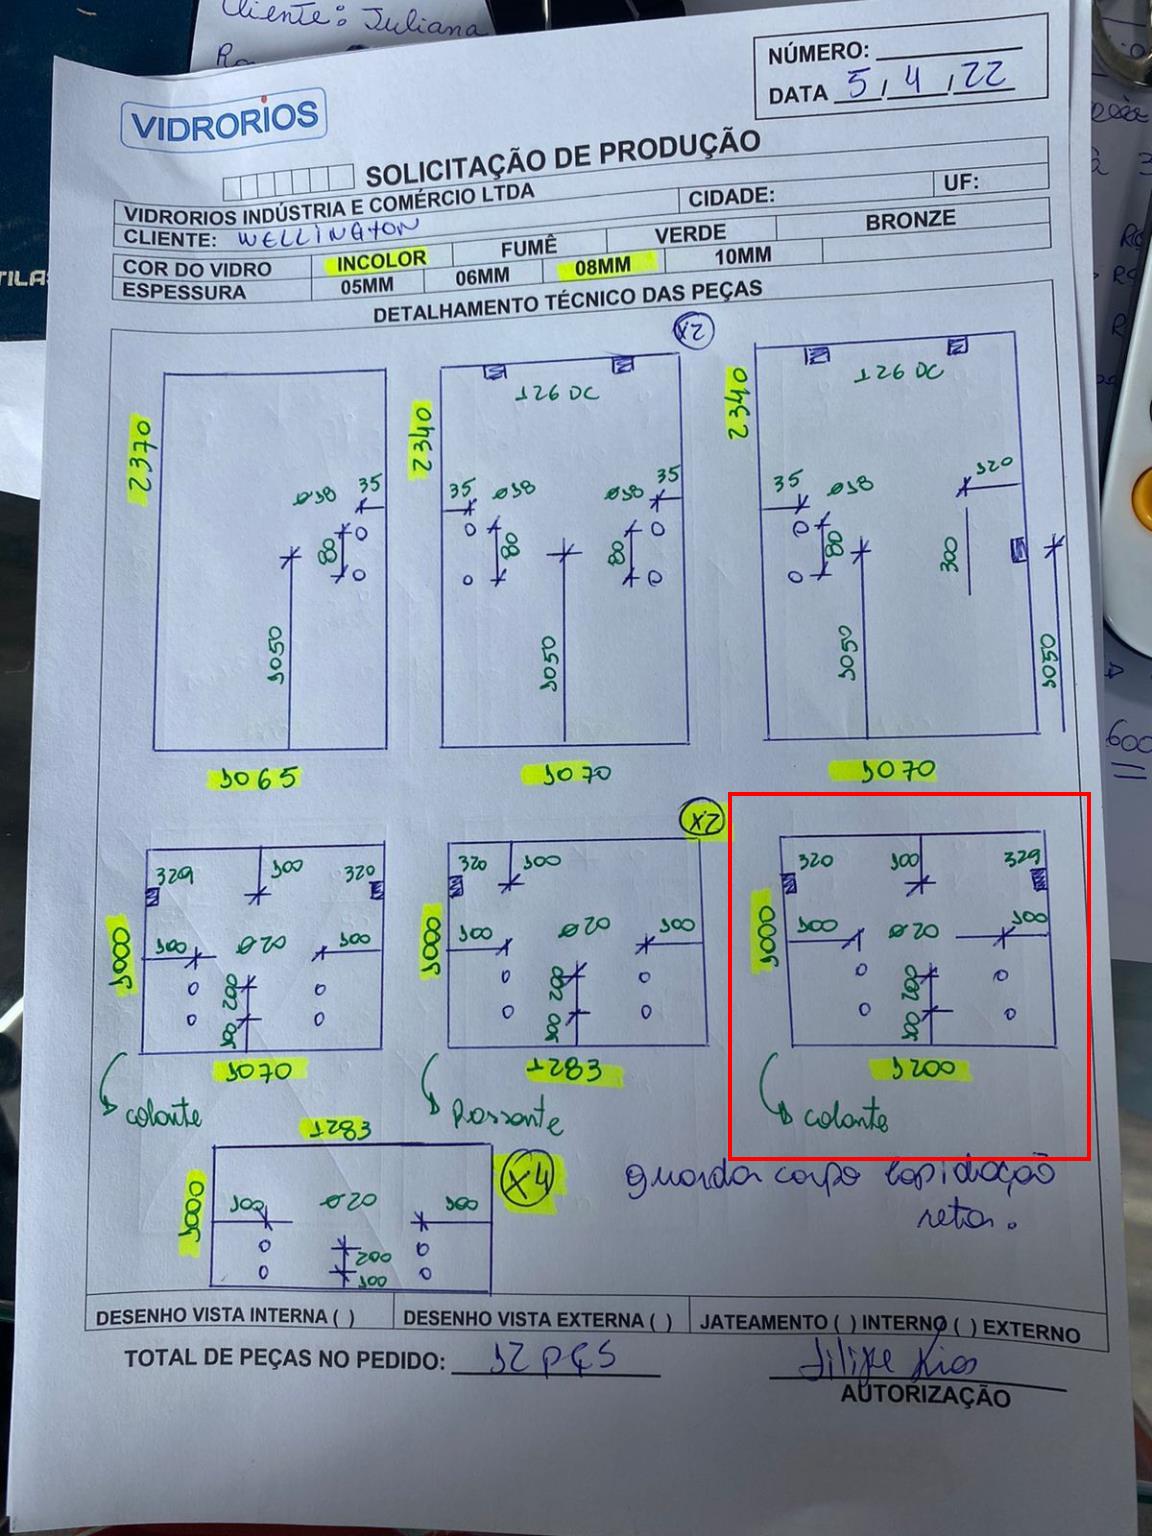 Cliente: Juliana
NÚMERO:
DATA 5, 4, 22
VIDRORIOS
SOLICITAÇÃO DE PRODUÇÃO
VIDRORIOS INDÚSTRIA E COMÉRCIO LTDA
CIDADE:
UF:
CLIENTE: WELLINGTON
COR DO VIDRO INCOLOR FUMÊ VERDE BRONZE
ESPESSURA 05MM 06MM 08MM 10MM
DETALHAMENTO TÉCNICO DAS PEÇAS
2370
35
ø18
80
1050
1065
X2
2340
126 DC
35 ø18
ø18 35
80
80
1050
1070
2340
126 DC
35 ø18
120
80
300
1050
1050
1070
329
100
320
1000
100 ø20 100
200
100
1070
colante
X2
320
100
1000
100 ø20 100
200
100
1283
Passante
320
100
329
1000
100 ø20 100
200
100
1200
colante
1283
X4
1000
100 ø20 100
200
100
guarda corpo lapidação
reta.
DESENHO VISTA INTERNA ( ) DESENHO VISTA EXTERNA ( ) JATEAMENTO ( ) INTERNO ( ) EXTERNO
TOTAL DE PEÇAS NO PEDIDO: 12 PÇS
Filipe Rios
AUTORIZAÇÃO
600